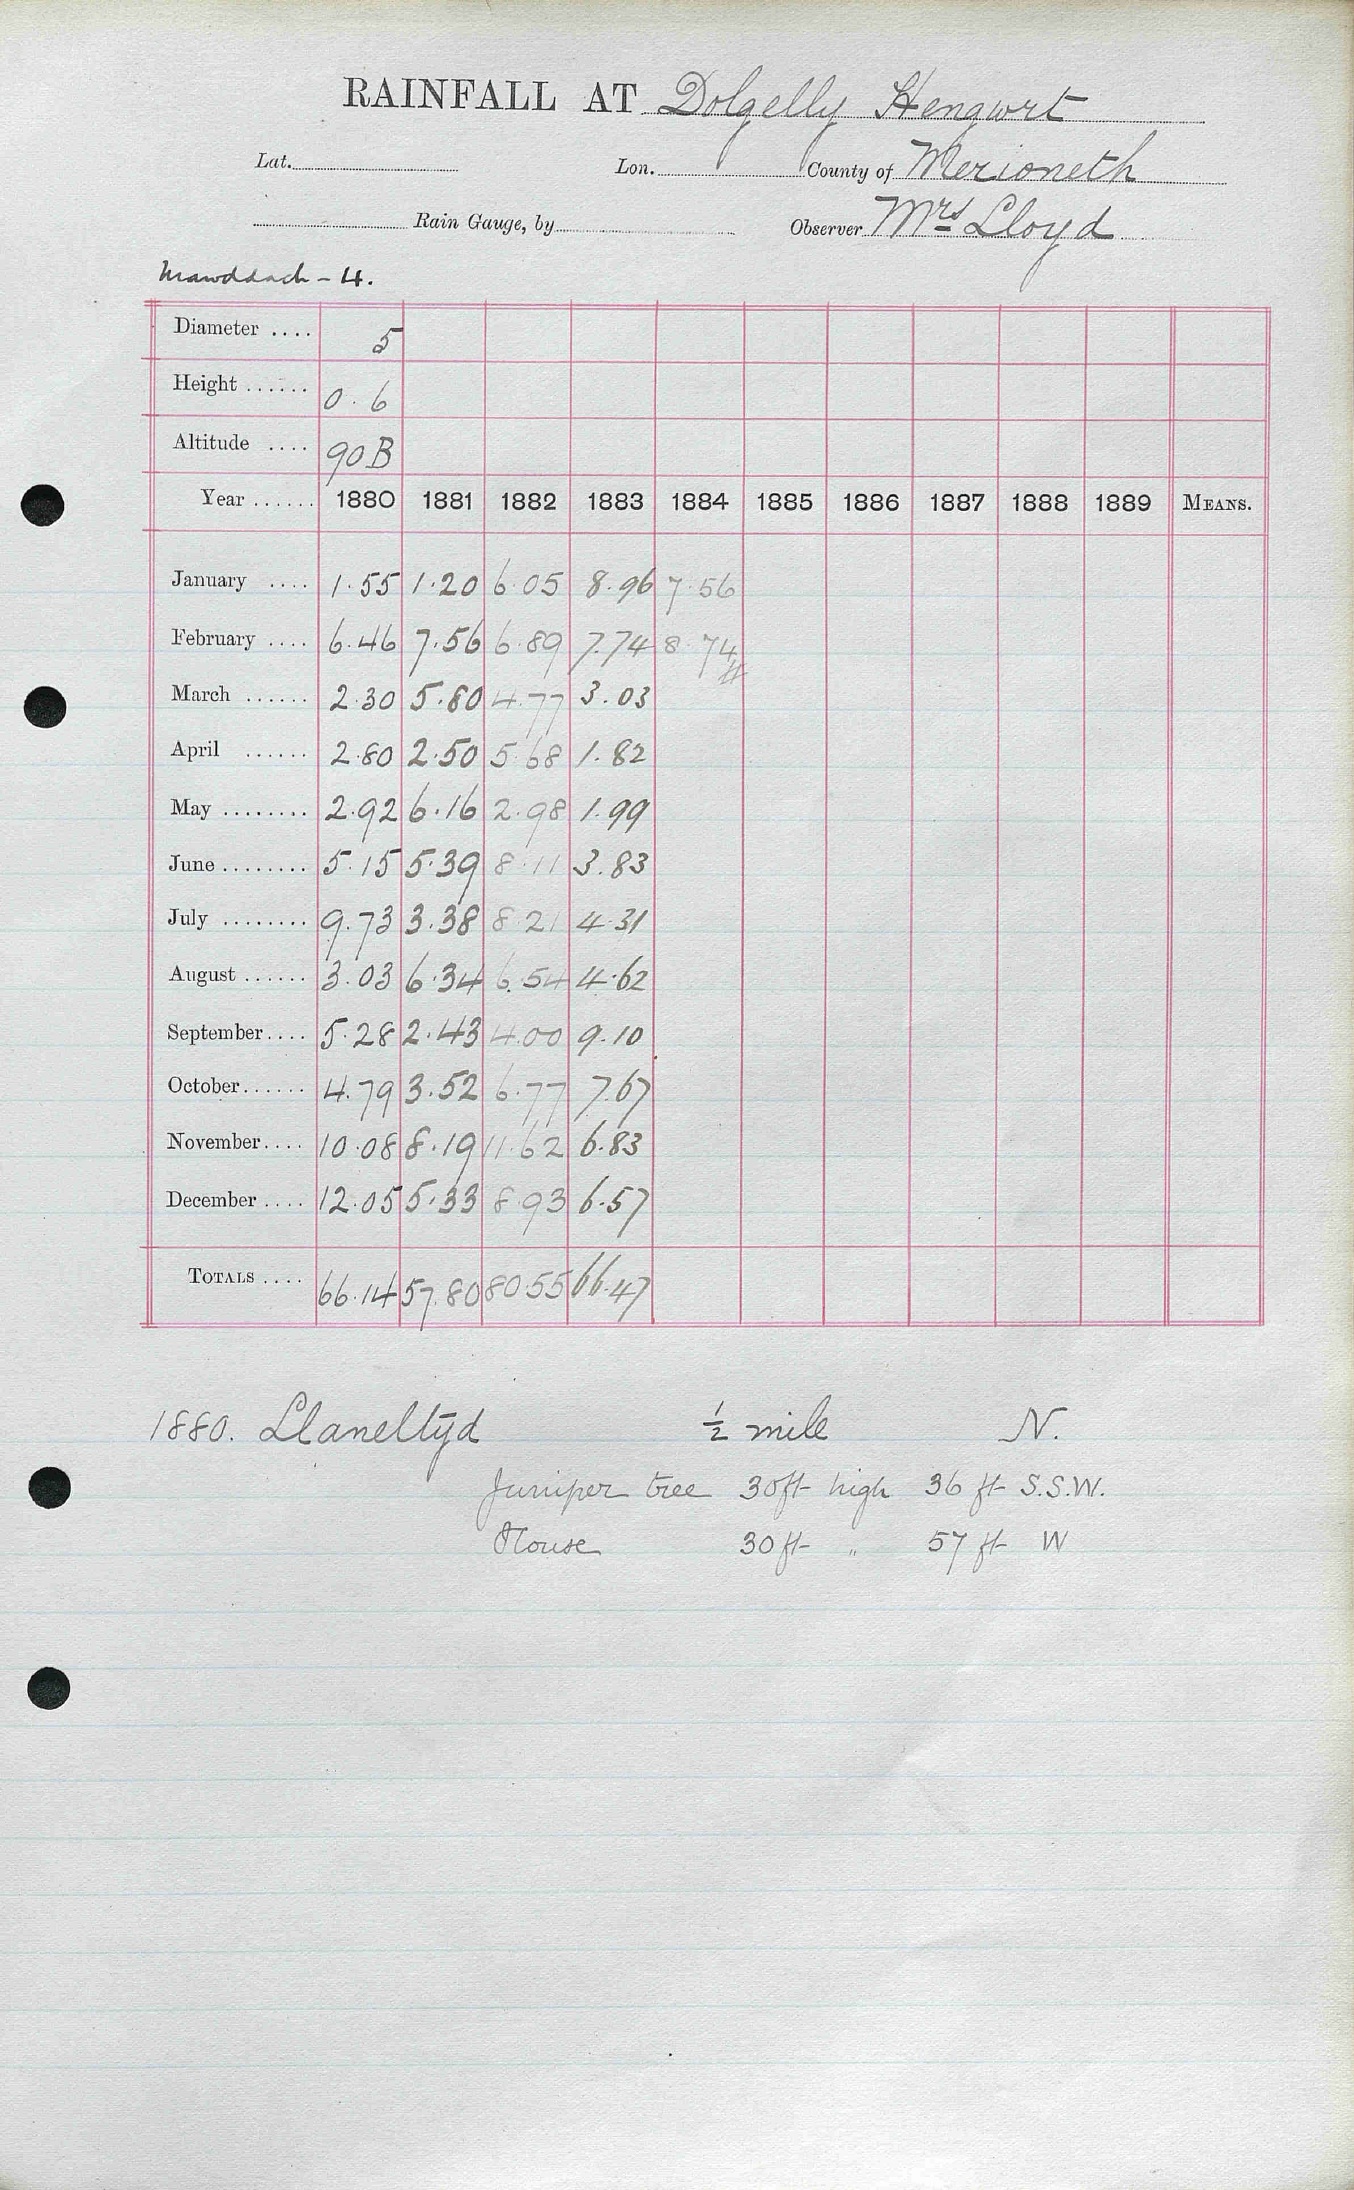 RAINFALL AT Dolgelly Hengwrt
Lat. Lon. County of Merioneth
Rain Gauge, by Observer Mrs Lloyd
Mawddach - 4.
Diameter .... 5
Height ...... 0.6
Altitude .... 90B
Year ...... 1880 1881 1882 1883 1884 1885 1886 1887 1888 1889 MEANS.
January .... 1.55 1.20 6.05 8.96 7.56
February .... 6.46 7.56 6.89 7.74 8.74 #
March ...... 2.30 5.80 4.77 3.03
April ...... 2.80 2.50 5.68 1.82
May ........ 2.92 6.16 2.98 1.99
June ........ 5.15 5.39 8.11 3.83
July ........ 9.73 3.38 8.21 4.31
August ...... 3.03 6.34 6.54 4.62
September .... 5.28 2.43 4.00 9.10
October ...... 4.79 3.52 6.77 7.67
November .... 10.08 8.19 11.62 6.83
December .... 12.05 5.33 8.93 6.57
TOTALS .... 66.14 57.80 80.55 66.47
1880. Llaneltyd ½ mile N.
Juniper tree 30ft high 36 ft S.S.W.
House 30ft " 57 ft W